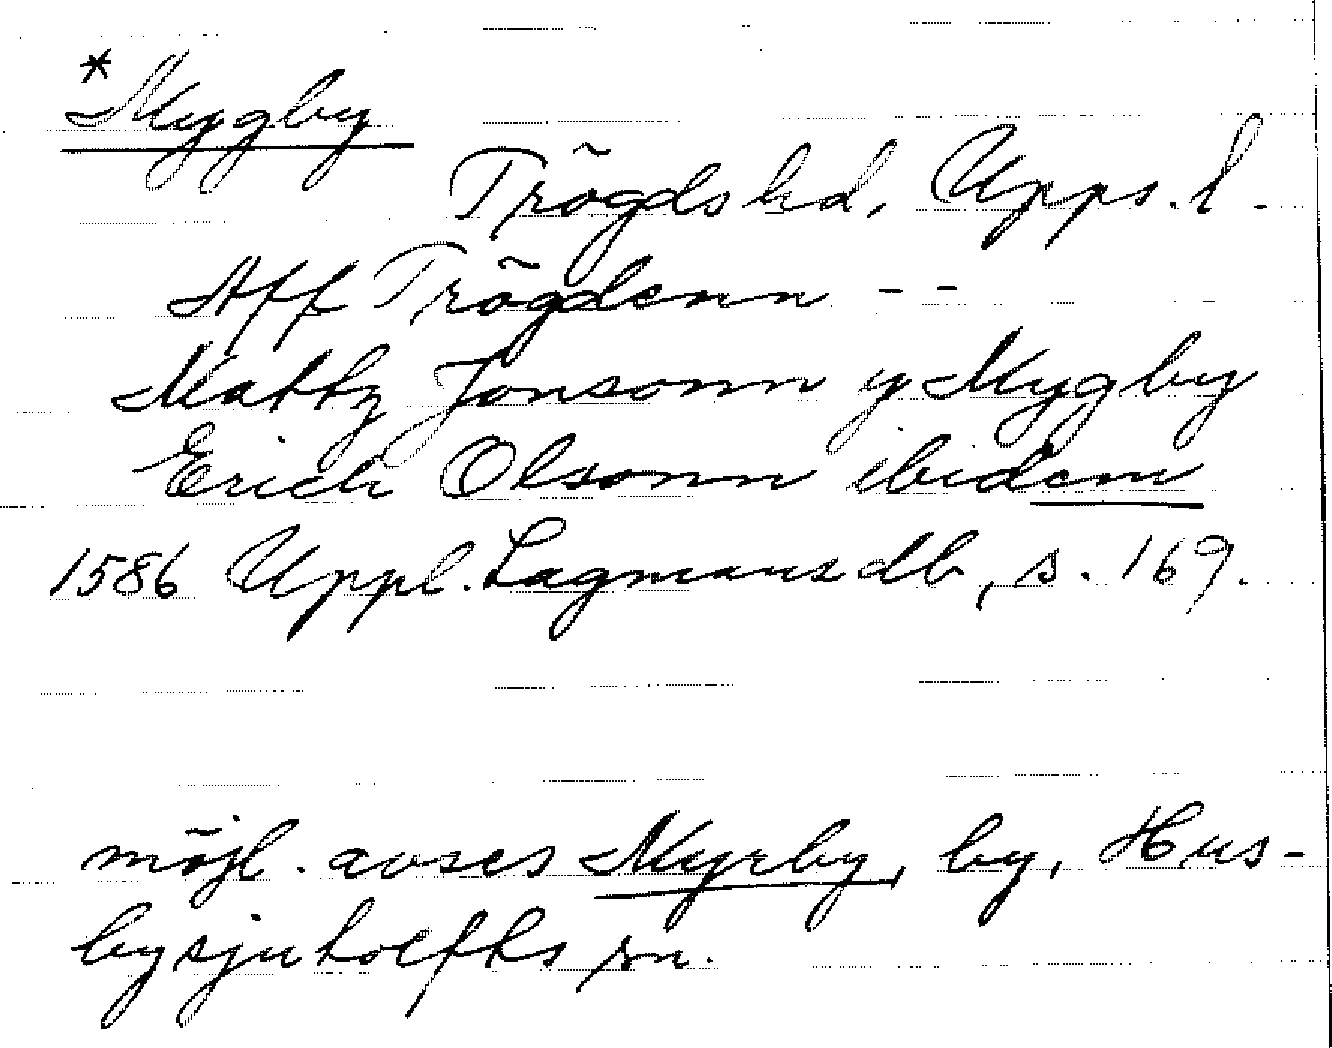 *Mygby
Trögds hd, Upps. l.
Aff Trögdenn - -
Mattz Jonsonn y Mygby
Erich Olsonn ibidem
1586 Uppl. Lagmansdb, s. 169.
möjl. avses Myrby, by, Hus-
bysjutolfts sn.